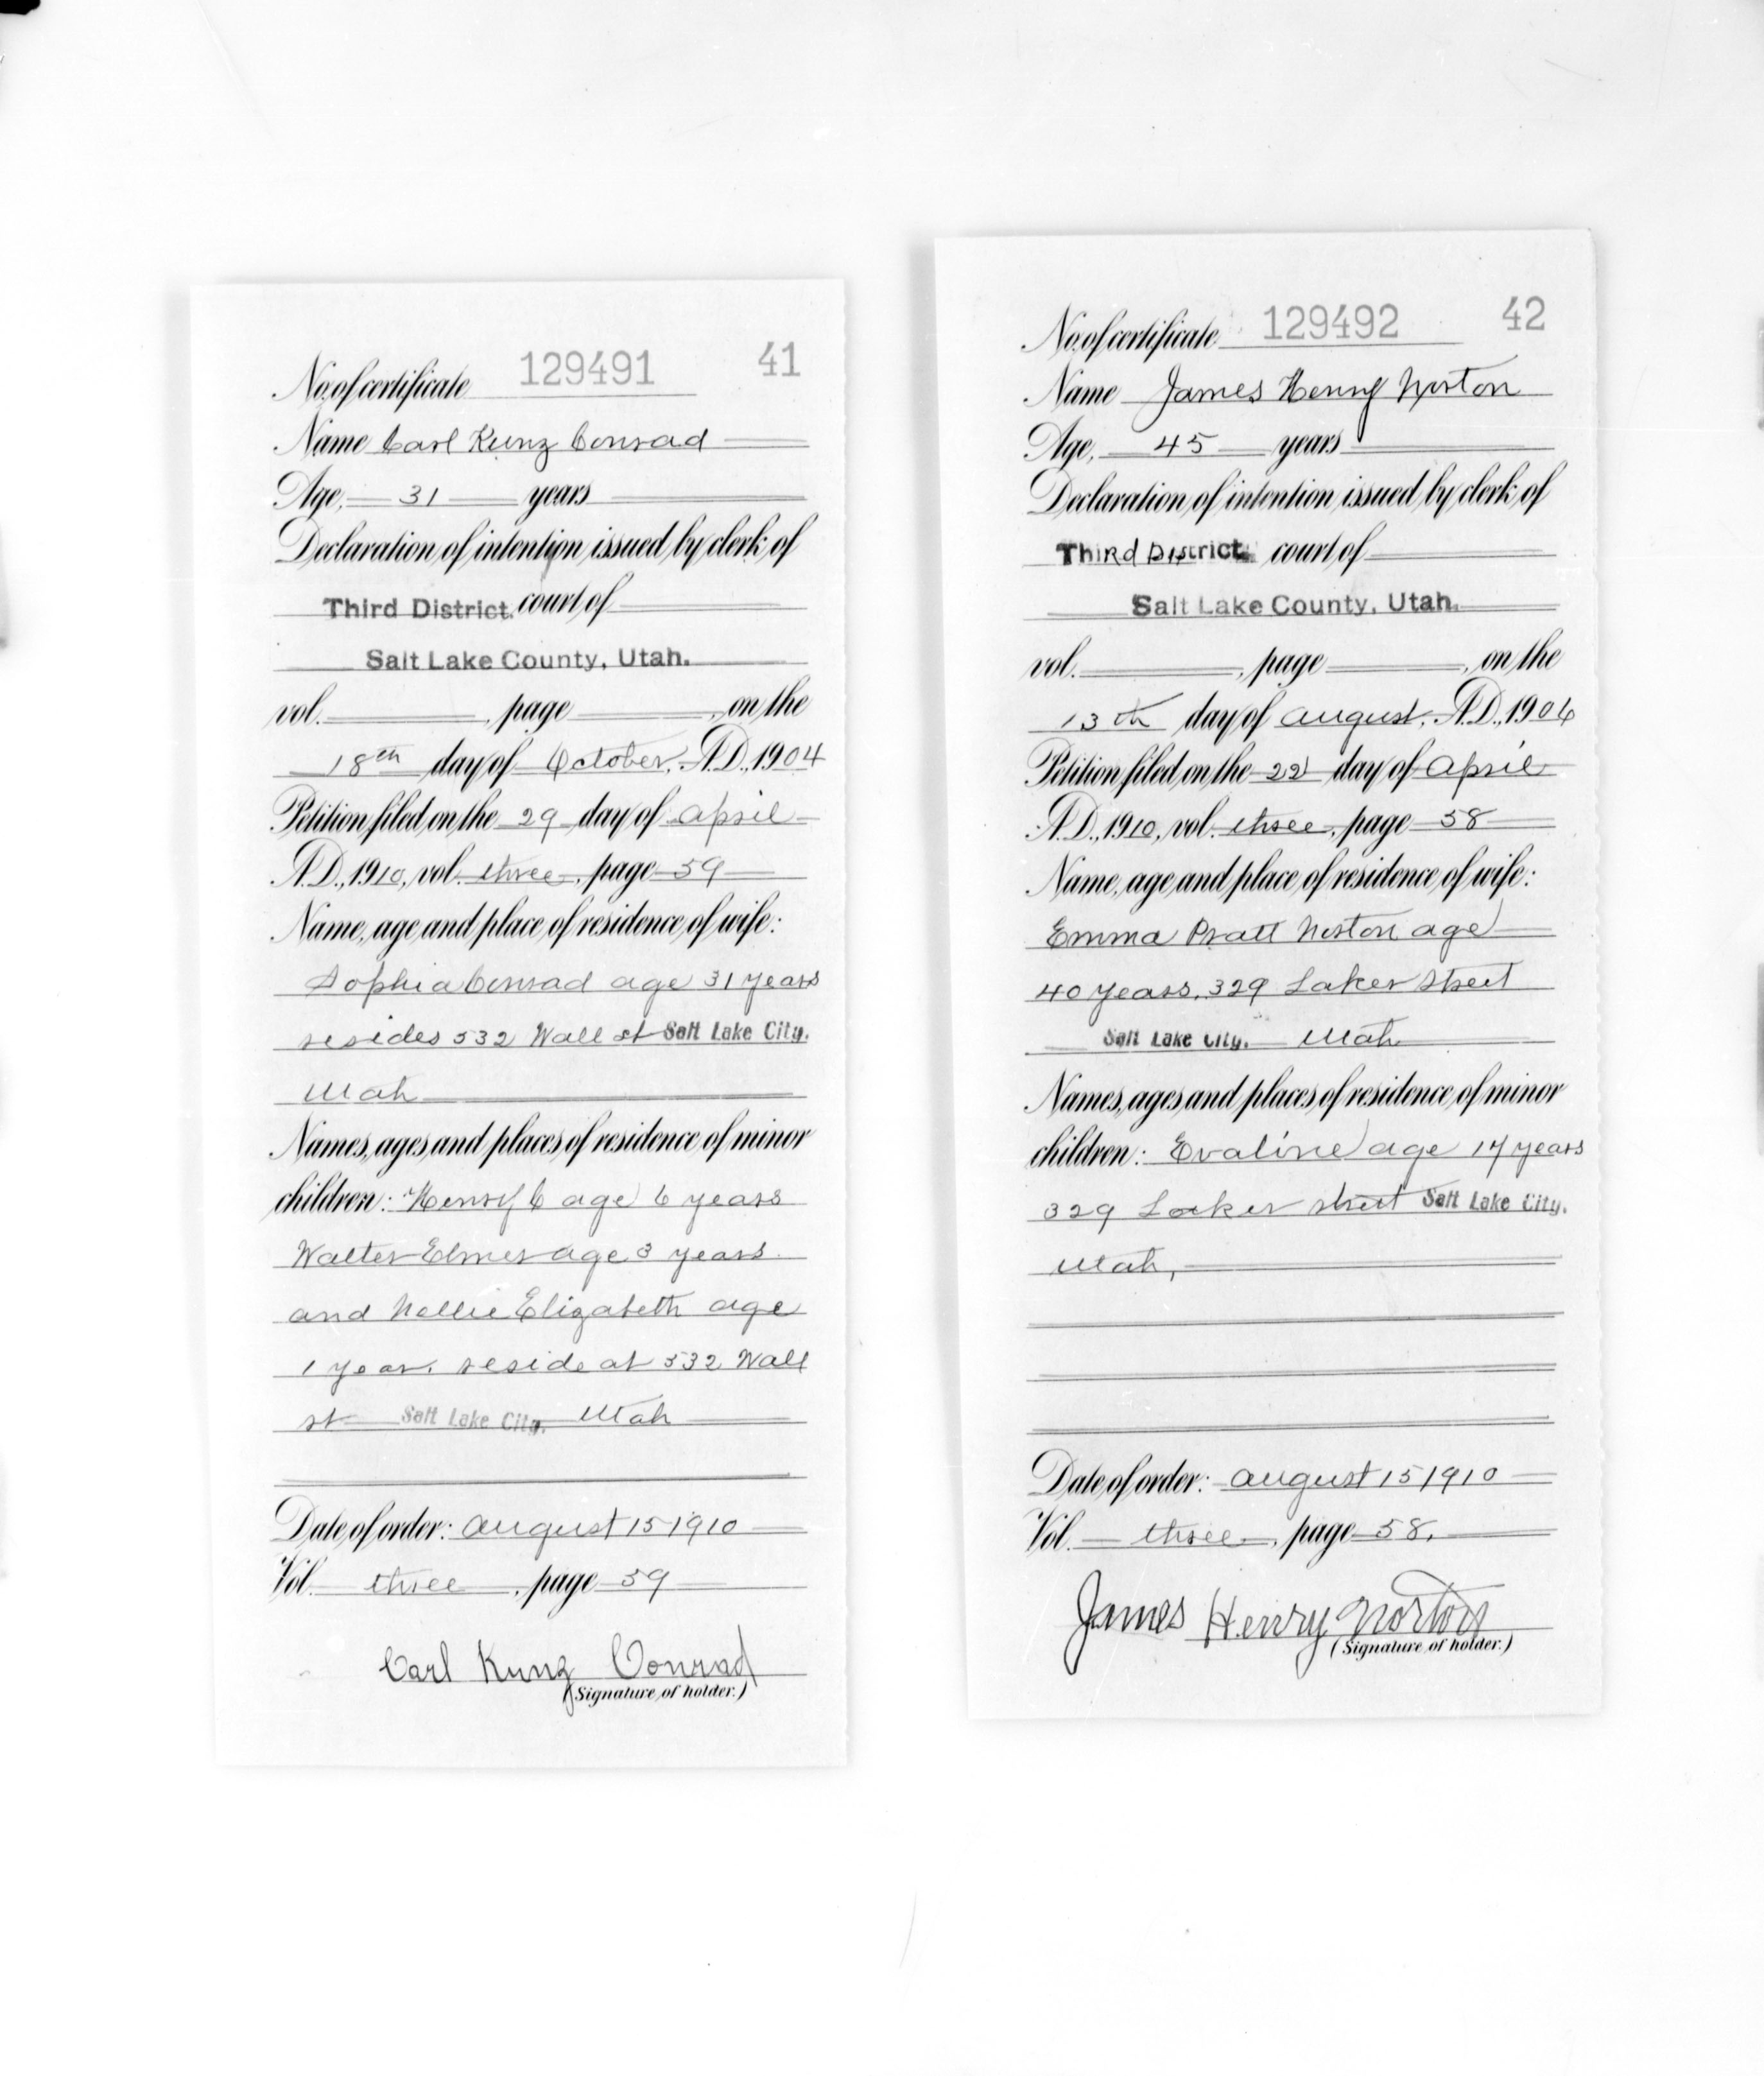 No. of certificate 129491 41
Name Carl Kunz Conrad
Age, 31 years
Declaration of intention issued by clerk of
Third District. court of
Salt Lake County, Utah.
vol. , page , on the
18th day of October, A.D., 1904
Petition filed on the 29 day of April
A.D., 1910, vol. three, page 59
Name, age and place of residence of wife:
Sophia Conrad age 31 years
resides 532 Wall st Salt Lake City.
Utah
Names, ages and places of residence of minor
children: Henry C age 6 years
Walter Elmer age 3 years
and Nellie Elizabeth age
1 year. reside at 532 Wall
st Salt Lake City. Utah
Date of order: August 15 1910
Vol. three, page 59
Carl Kunz Conrad
(Signature of holder.)
No. of certificate 129492 42
Name James Henry Norton
Age, 45 years
Declaration of intention issued by clerk of
Third District. court of
Salt Lake County, Utah.
vol. , page , on the
13th day of August, A.D., 1906
Petition filed on the 22 day of April
A.D., 1910, vol. three, page 58
Name, age and place of residence of wife:
Emma Pratt Norton age
40 years. 329 Laker Street
Salt Lake City. Utah
Names, ages and places of residence of minor
children: Evaline age 17 years
329 Laker street Salt Lake City.
Utah,
Date of order: August 15 1910
Vol. three, page 58.
James Henry Norton
(Signature of holder.)